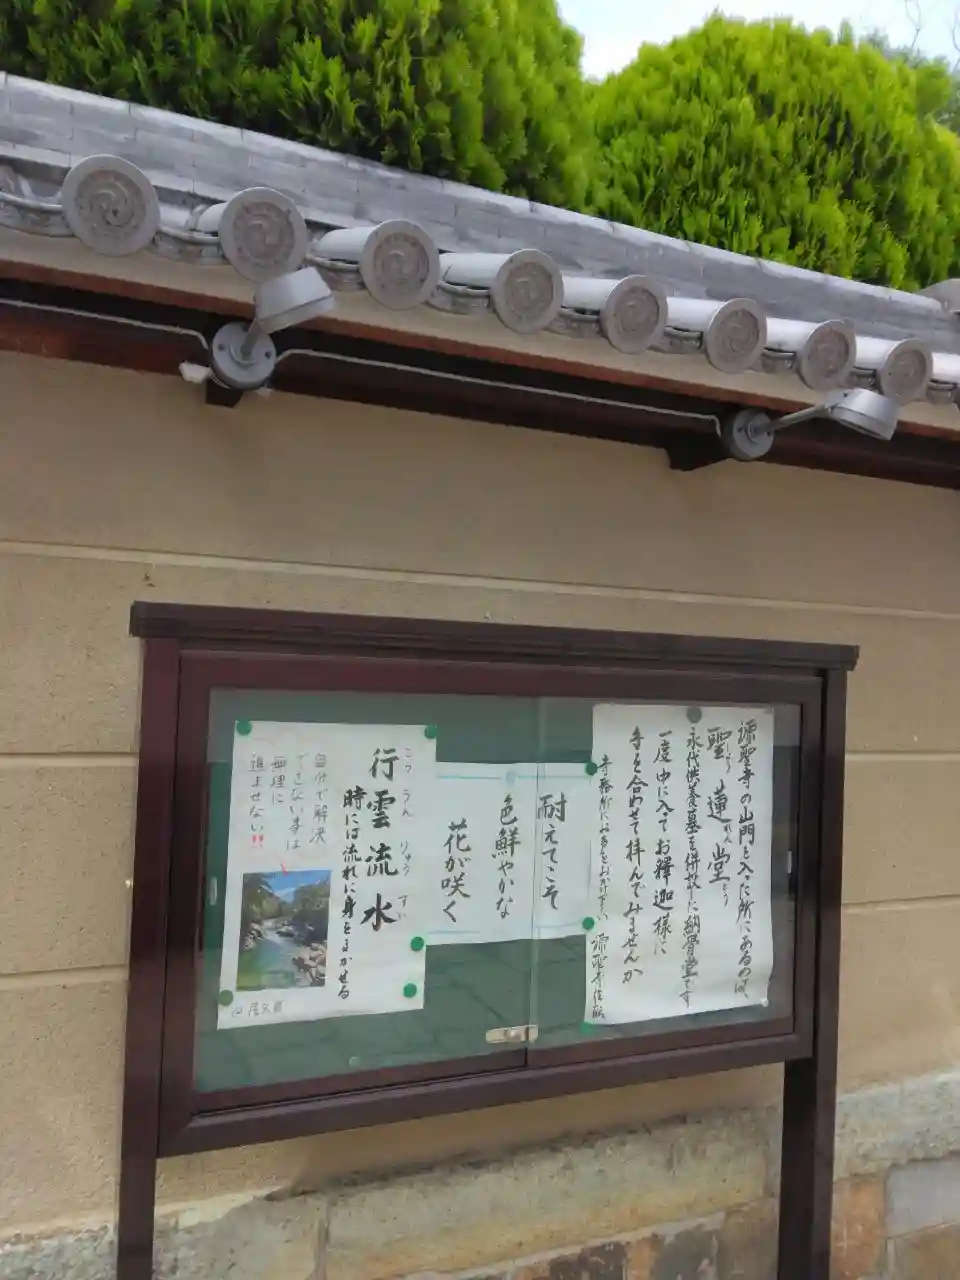 源聖寺の山門を入った所にあるのが、
聖蓮堂
しょう れん どう
永代供養墓を併設した納骨堂です
一度中に入ってお釈迦様に
手を合わせて拝んでみませんか
寺務所にお声をおかけ下さい 源聖寺住職
耐えてこそ
色鮮やかな
花が咲く
行雲流水
こう うん りゅう すい
時には流れに身をまかせる
自分で解決
できない事は
無理に
進ませない!!